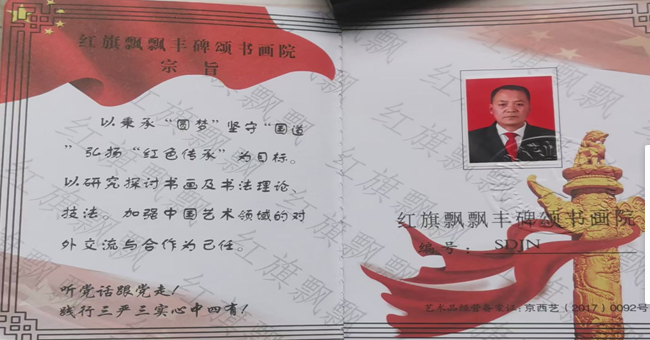 红旗飘飘丰碑颂书画院
宗旨
以秉承“圆梦”坚守“国道
”弘扬“红色传承”为目标。
以研究探讨书画及书法理论、
技法。加强中国艺术领域的对
外交流与合作为己任。
听党话跟党走！
践行三严三实心中四有！
红旗飘飘丰碑颂书画院
编号：SDJN
艺术品经营备案证：京西艺（2017）0092号